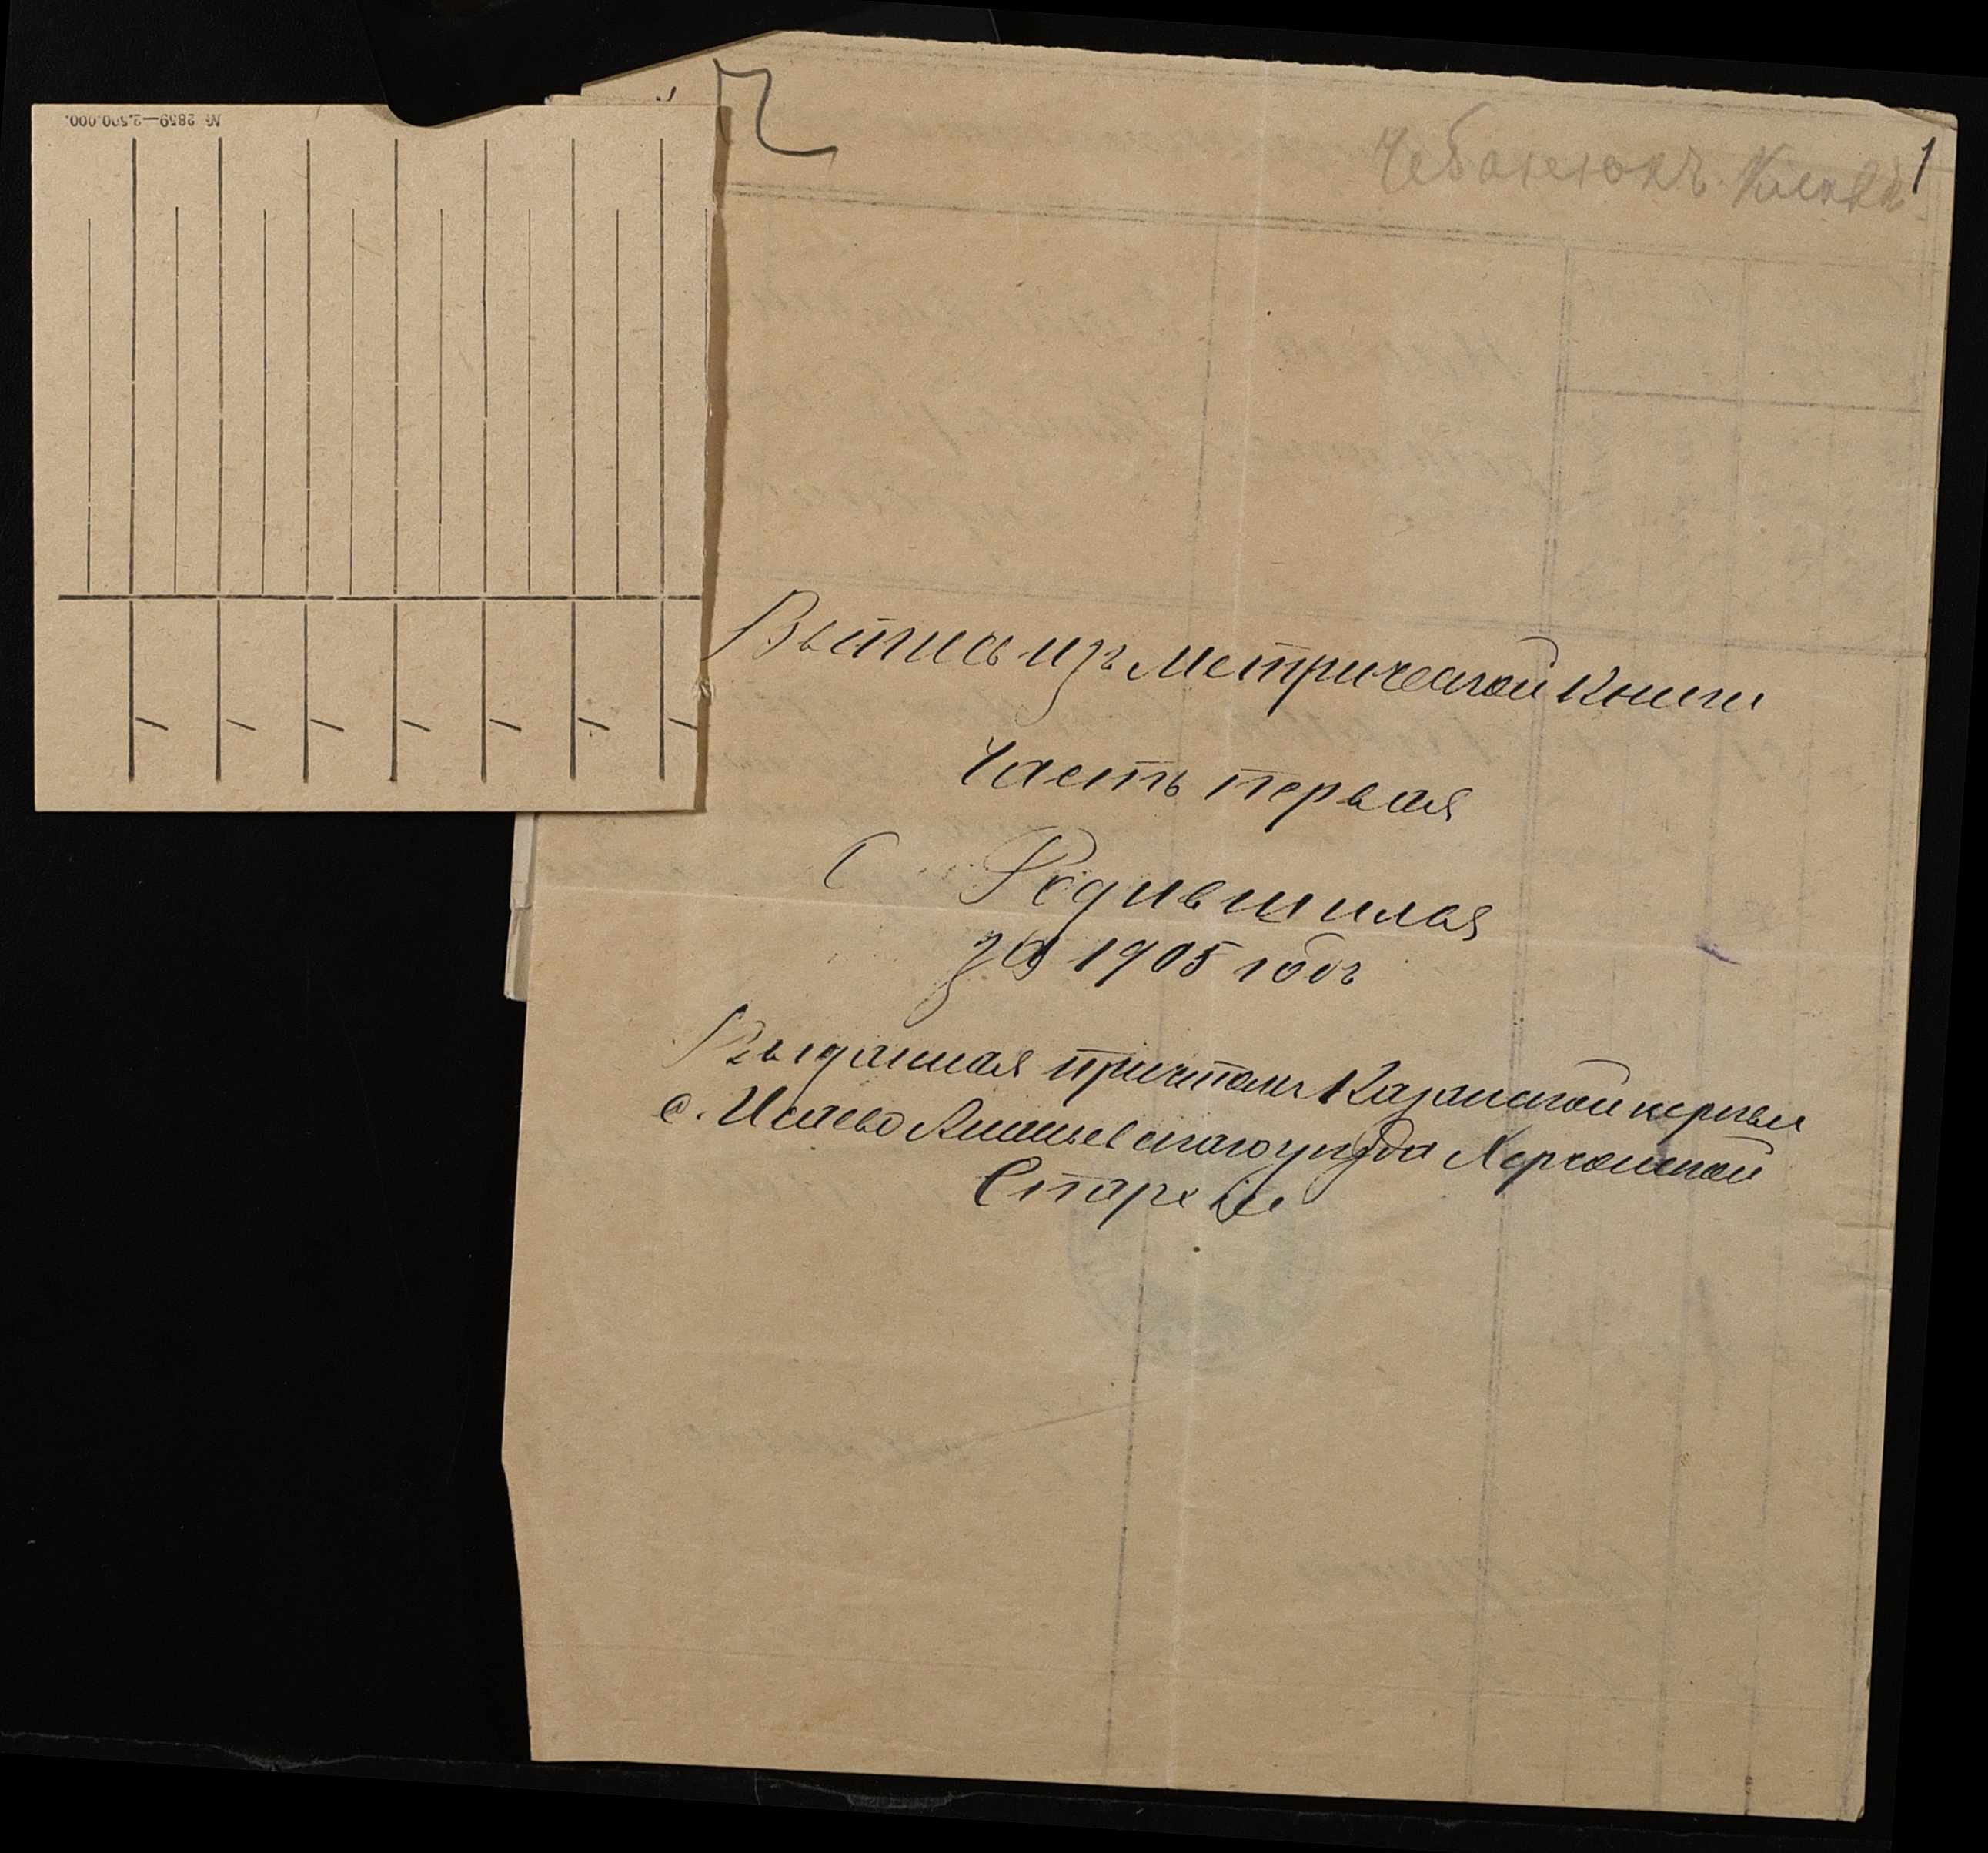 № 2859—2.500.000.
1
Чебанюкъ
Выпись изъ Метрической Книги
Часть первая
О Родившихся
за 1905 годъ
Выданная причтомъ Казанской церкви
с. Исаево Ананьевскаго уѣзда Херсонской
Епархіи